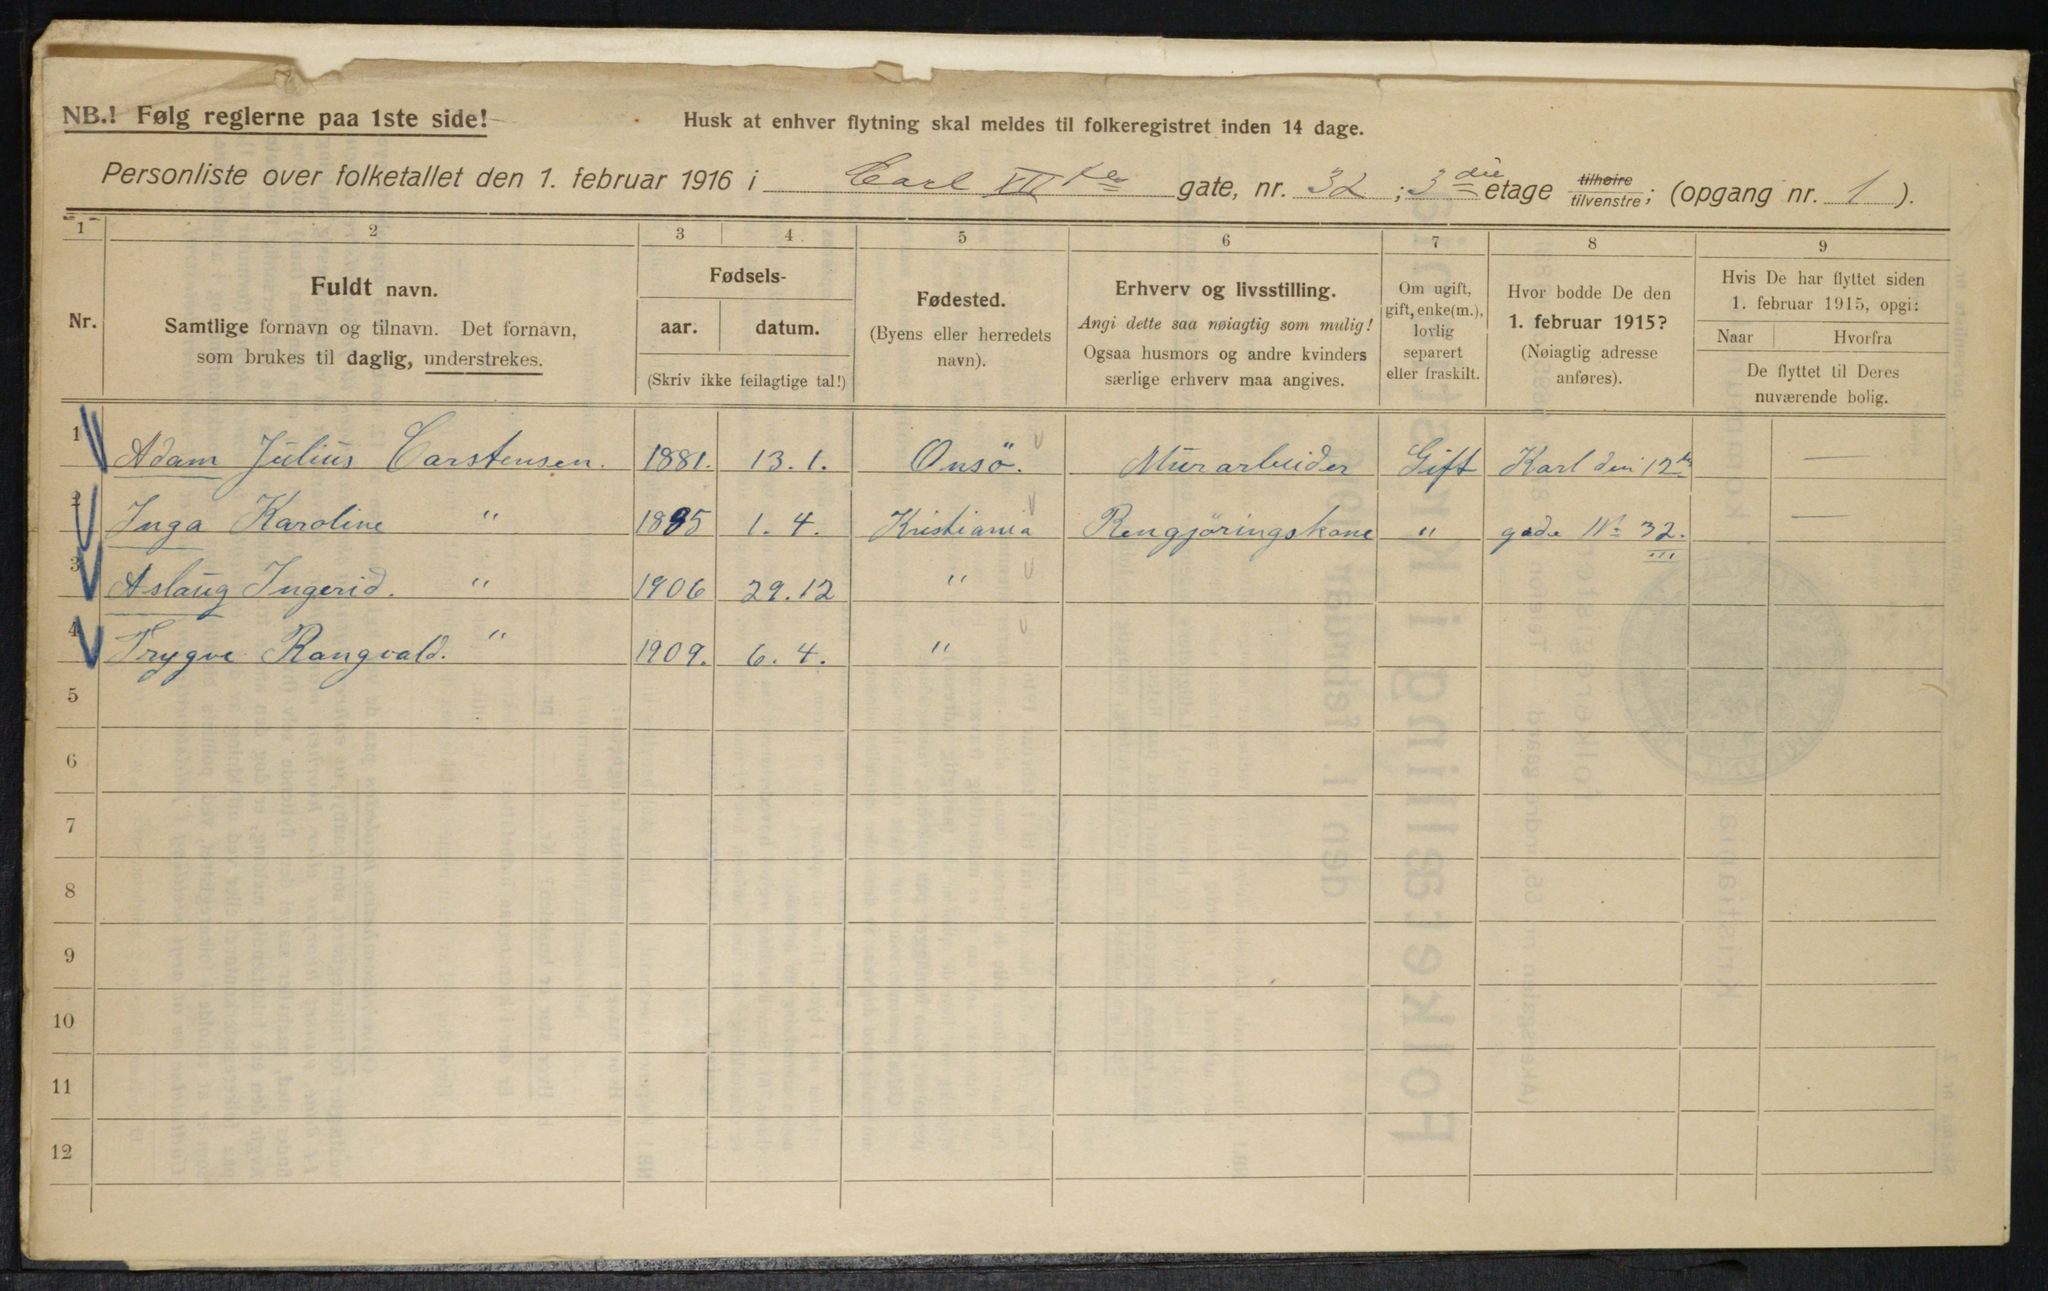 NB.! Følg reglerne paa 1ste side!
Husk at enhver flytning skal meldes til folkeregistret inden 14 dage.
Personliste over folketallet den 1. februar 1916 i Carl XIIte gate, nr. 32 ; 3die etage tilhøire tilvenstre ; (opgang nr. 1 ).
1 2 3 4 5 6 7 8 9
Nr.
Fuldt navn.
Samtlige fornavn og tilnavn. Det fornavn,
som brukes til daglig, understrekes.
Fødsels-
aar. datum.
(Skriv ikke feilagtige tal!)
Fødested.
(Byens eller herredets
navn).
Erhverv og livsstilling.
Angi dette saa nøiagtig som mulig!
Ogsaa husmors og andre kvinders
særlige erhverv maa angives.
Om ugift,
gift, enke(m.),
lovlig
separert
eller fraskilt.
Hvor bodde De den
1. februar 1915?
(Nøiagtig adresse
anføres).
Hvis De har flyttet siden
1. februar 1915, opgi:
Naar Hvorfra
De flyttet til Deres
nuværende bolig.
1 Adam Julius Carstensen. 1881. 13.1. Onsö. Murarbeider Gift Karl den 12te —
2 Inga Karoline " 1885 1.4. Kristiania Rengjöringskone " gade No 32. III —
3 Aslaug Ingerid. " 1906 29.12 "
4 Trygve Rangvald. " 1909. 6.4. "
5
6
7
8
9
10
11
12